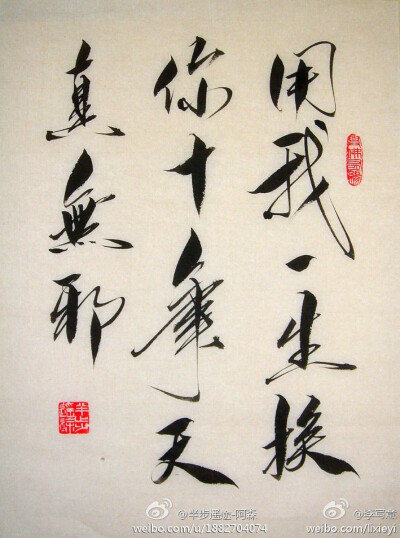 用我一生换
你十年天
真無邪
@半步遥途-阿森
weibo.com/u/1882704074
weibo.com/lixieyi